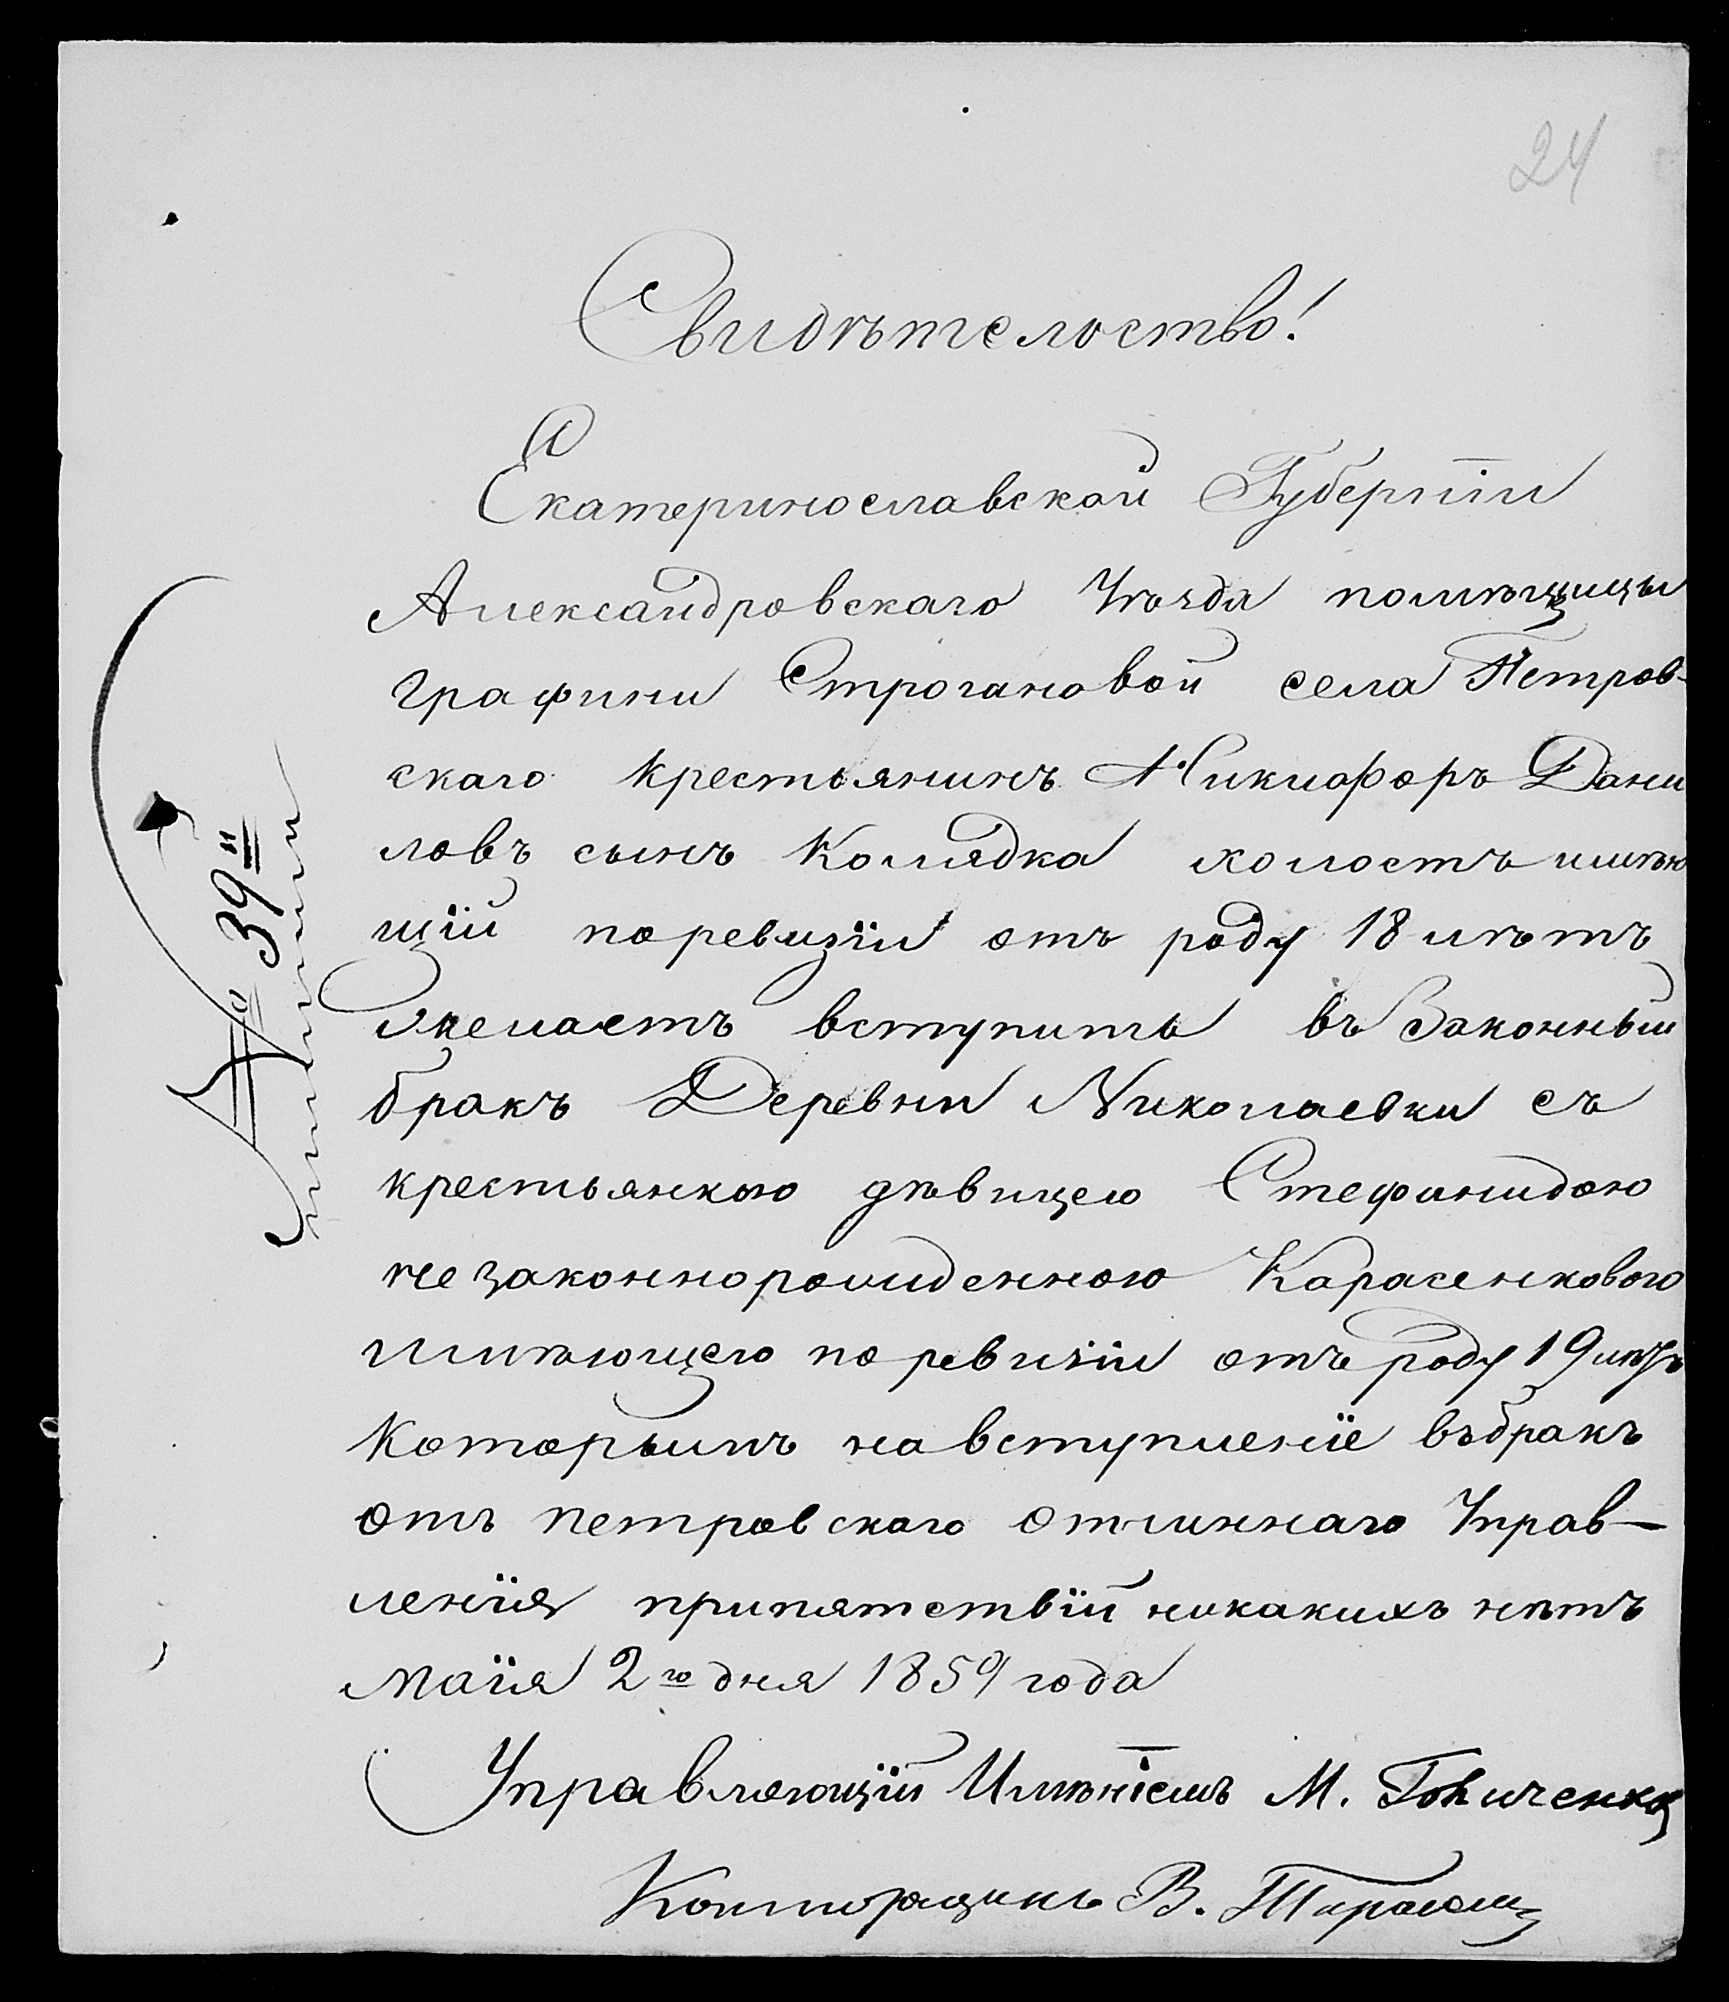 24
Свидѣтелоство!
Екатеринославской Губерніи
Александровскаго Уѣзда помѣщицы
графини Строгановой села Петров-
скаго крестьянинъ Никифоръ Дани
ловъ сынъ Колядка холостъ имѣю
щій поревизіи отъ роду 18 лѣтъ
желаетъ вступить въ Законный
бракъ Деревни Николаевки съ
крестьянкою дѣвицею Стефанидою
незаконнорожденною Карасенковою
имѣющею поревизіи отъ роду 19 лѣтъ
которымъ навступленіе въбракъ
отъ петровскаго отчиннаго Управ-
ленія припятствій никакихъ нѣтъ
маія 2го дня 1859 года
Управляющій Имѣніемъ М.
Конторщикъ В.
№ 39й